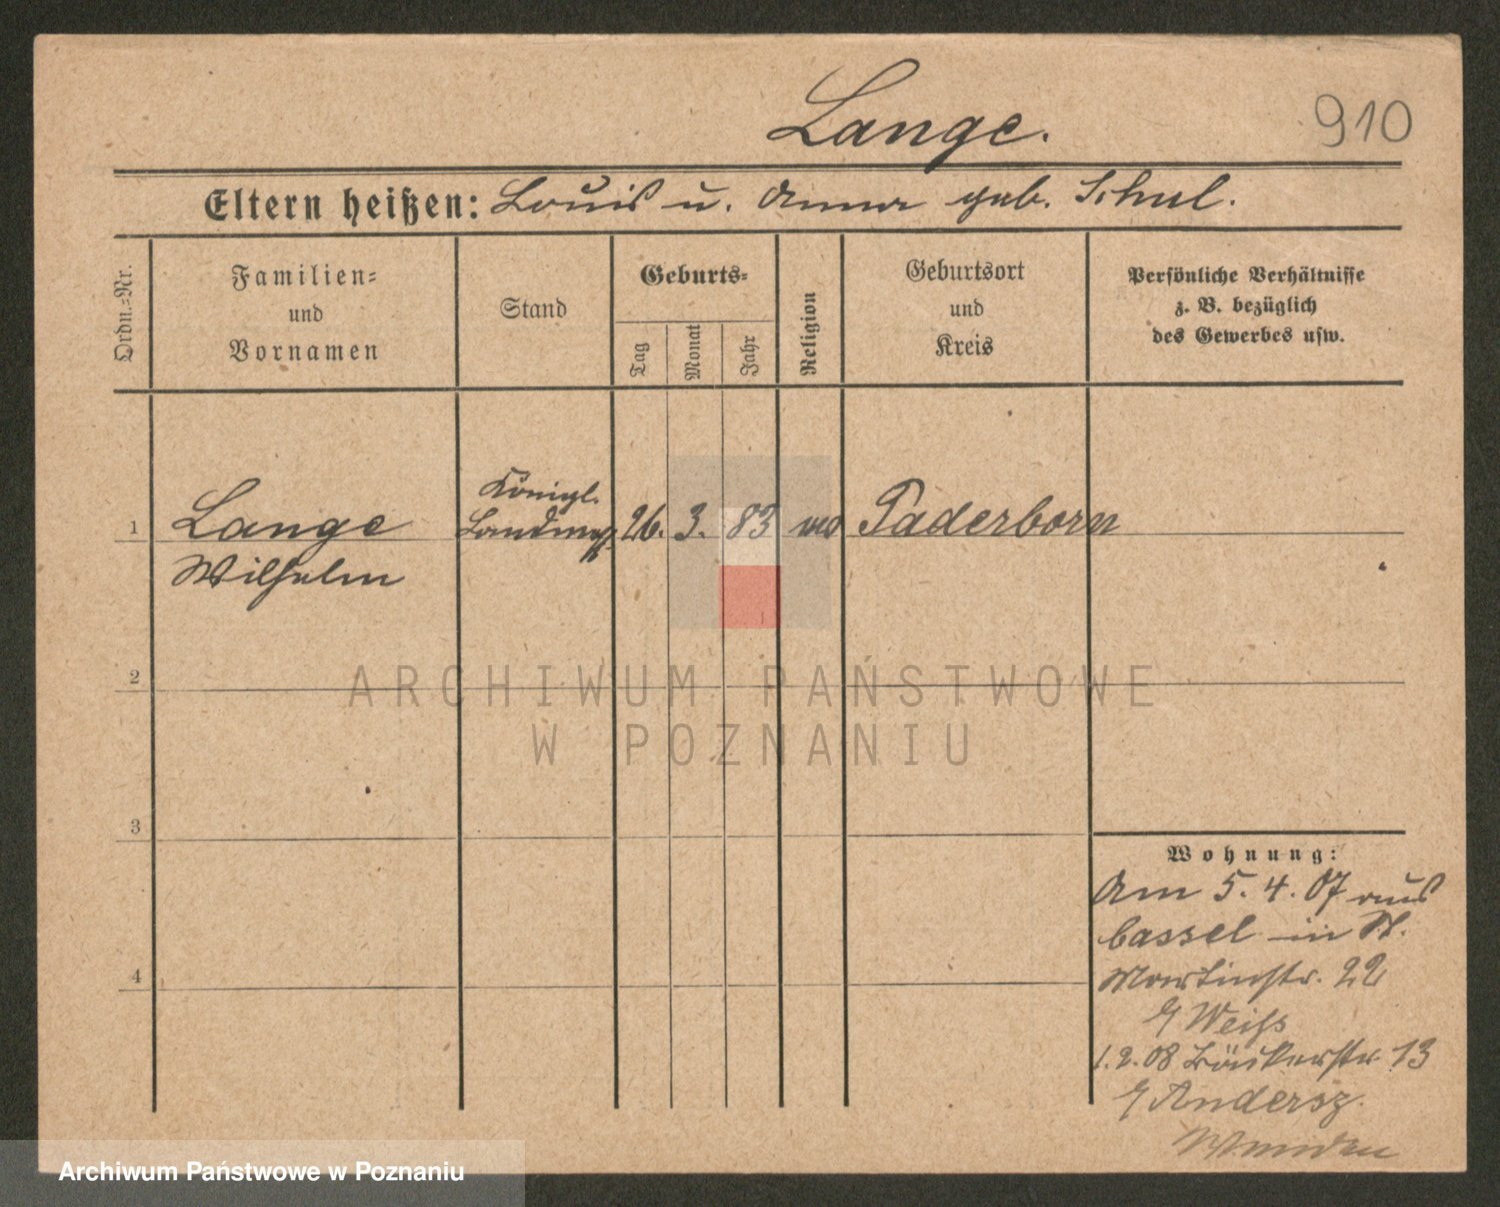 Lange.
910
Eltern heißen: Louis u. Anna geb. Schul.
Ordn.-Nr.
Familien-
und
Vornamen
Stand
Geburts-
Tag
Monat
Jahr
Religion
Geburtsort
und
Kreis
Persönliche Verhältnisse
z. B. bezüglich
des Gewerbes usw.
1
Lange
Wilhelm
Königl.
Landmess.
26.
3.
83
Paderborn
2
ARCHIWUM PAŃSTWOWE
W POZNANIU
3
4
Wohnung:
Am 5. 4. 07 aus
Cassel in St.
Martinstr. 22
Weiss
1. 2. 08 Bäckerstr. 13
Andersz.
Archiwum Państwowe w Poznaniu